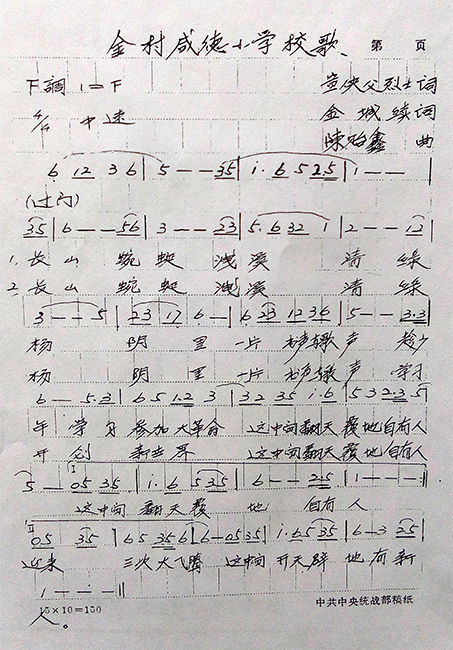 金村咸德小学校歌
第 页
下調 1=下 宣侠父烈士词
4/4 中速 金城续词
陳贻鑫 曲
6 12 3 6 | 5 - - 35 | i. 6 5 2.5 | 1 - - |
(过门)
35 | 6 - - 56 | 3 - - 23 | 5. 6 32 1 | 2 - - 12 |
1. 长山 蜿蜒 浅溪 清绿
2. 长山 蜿蜒 浅溪 清绿
3 - - 5 | 23 17 6 - | 6 23 12 36 | 5 - - 3.3 |
杨 阴里 一片 书声歌声 趁少
杨 阴里 一片 书声歌声 学习
6 - - 5.3 | 6 5 1.2 3 | 32 35 i.6 | 5 3 2.3 5 |
年 学习 参加大革命 这中间翻天覆地自有人
开创 新世界 这中间翻天覆地自有人
5 - 05 35 | i. 6 5 35 | 6 - - 25 | 1 - - - :||
这中间 翻天覆 地 自有 人
05 35 | 65 35 6 | 6 - 05 35 | i. 65 35 | 6 - 3 25 |
迎来 三次大飞腾 这中间 开天辟 地有新
1 - - - ||
15×10=150 中共中央统战部稿纸
人。